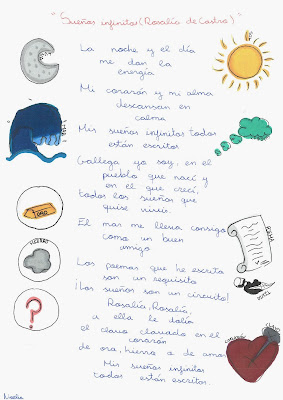 "Sueños infinitos (Rosalía de Castro)"
La noche y el día
me dan la
energía
Mi corazón y mi alma
descansan en
calma
Mis sueños infinitos todos
están escritos
Gallega yo soy, en el
pueblo que nací y
en el que crecí,
todos los sueños que
quise vivir.
El mar me lleva consigo
como un buen
amigo
Los poemas que he escrito
son un requisito
¡Los sueños son un circuito!
Rosalía, Rosalía,
a ella le dolía
el clavo clavado en el
corazón
de oro, hierro o de amor
Mis sueños infinitos
todos están escritos.
ORO
HIERRO
?
POEMA
Noelia